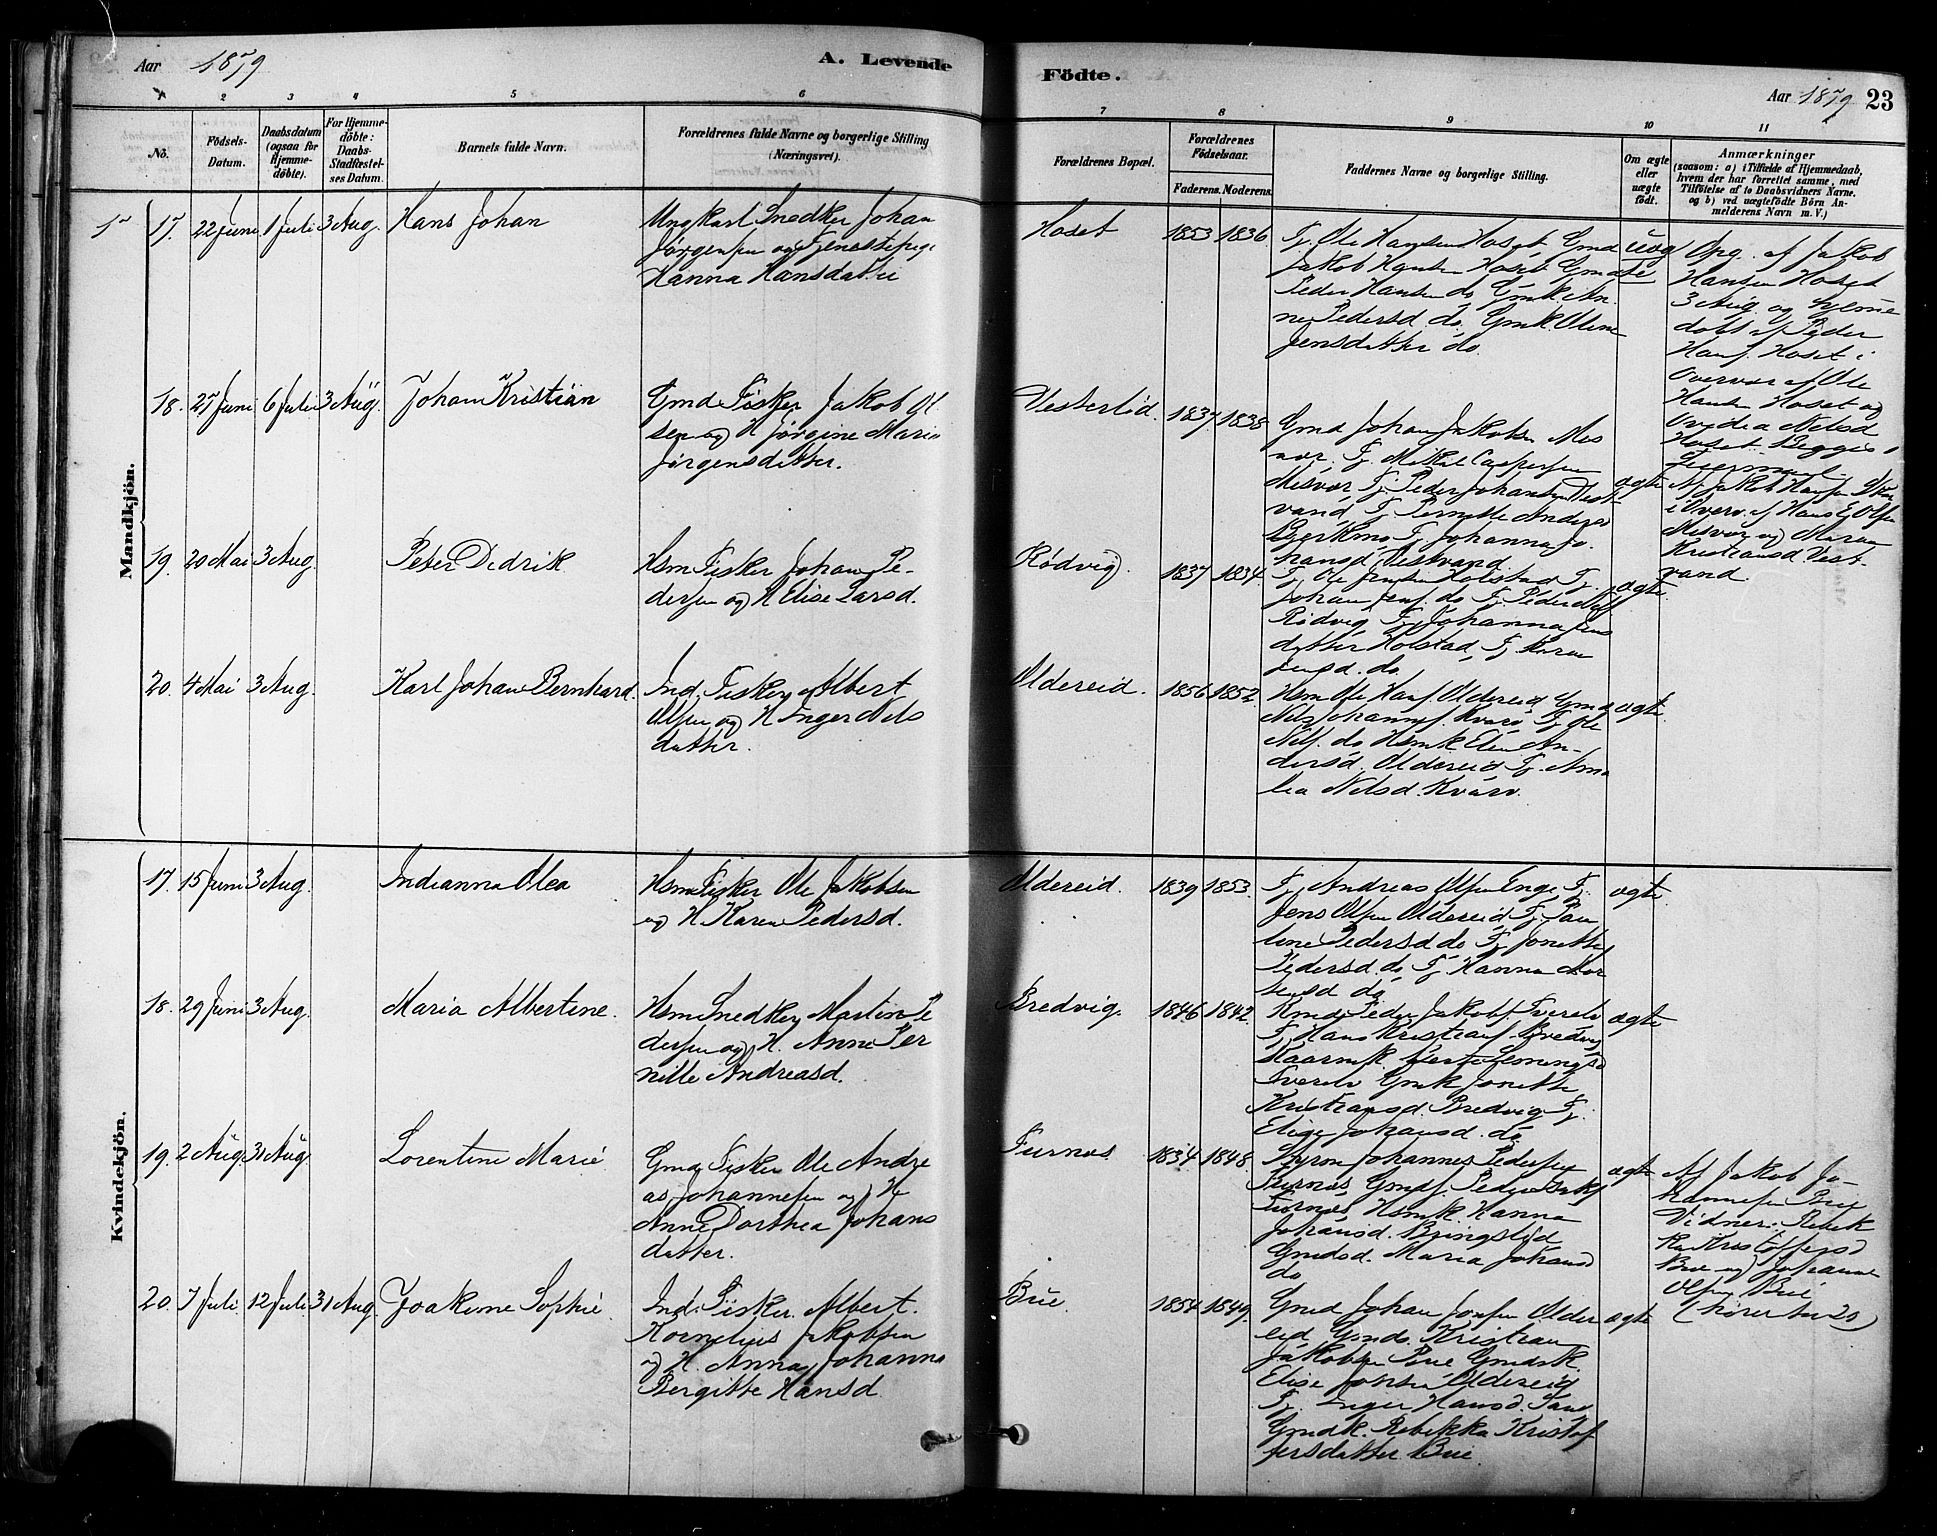 Aar 1879
A. Levende
Födte.
Aar 1879 23
1 2 3 4 5 6 7 8 9 10 11
No.
Födsels-
Datum.
Daabsdatum
(ogsaa for
Hjemme-
döbte).
For Hjemme-
döbte:
Daabs-
Stadfæstel-
ses Datum.
Barnets fulde Navn.
Forældrenes fulde Navne og borgerlige Stilling
(Næringsvei).
Forældrenes Bopæl.
Forældrenes
Födselsaar.
Faderens. Moderens.
Faddernes Navne og borgerlige Stilling.
Om ægte
eller
uægte
födt.
Anmærkninger
(saasom: a) i Tilfælde af Hjemmedaab,
hvem der har forrettet samme, med
Tilföielse af to Daabsvidners Navne.
og b) ved uægtefödte Börn An-
melderens Navn m. V.)
Mandkjön.
17. 22 Juni 1 Juli 3 Aug. Hans Johan
Ungkarl Snedker Johan
Jørgensen og Tjenestepige
Hanna Hansdatter
Hoset 1853 1836
Tj. Ole Hansen Hoset Gmd
Jakob Hansen Hoset Gmd
Peder Hansen do Gmk. An-
ne Pedersd. do. Gmk Oline
Jensdatter do.
uæg
te
Opg. af Jakob
Hansen Hoset
3 Aug. og hjemme
døbt af Peder
Hans. Hoset i
Overvær af Ole
Hansen Hoset og
Nilsd
Hoset. Begges
18. 27 Juni 6 Juli 3 Aug. Johan Kristian
Gmd Fisker Jakob Ol
sen og H. Jørgine Maria
Jørgensdatter.
Vesterlid. 1837 1838
Gmd Johan Jakobsen Mis
vær. Tj. Mikal Caspersen
Misvær Tj. Peder Johansen Vest
vand, Tj. Pernille Anders
Tj. Johanna Jo
hansd. Vestvand.
ægte
Af Jakob Hansen
i Overv. af Hans E. Olsen
Misvær og Maren
Kristiansd. Vest-
vand
19. 20 Mai 3 Aug. Peter Didrik
Hsm Fisker Johan Pe-
dersen og H. Elise Larsd.
Rødvig. 1837 1834
Tj. Ole Jensen Holstad Tj.
Johan Jens. do Tj. Peder
Rødvig Tj. Johanna Jens
datter Holstad, Tj. Karen
Jensd. do.
ægte
20. 4 Mai 3 Aug. Karl Johan Bernhard.
Ind. Fisker Albert
Olsen og H. Inger Nils
datter.
Oldereid. 1856 1852
Hsm Ole Hans. Oldereid Gmd
Nils Johannes. Kvarv Tj. Ole
Nils. do Hsmk Elen An-
dersd. Oldereid Tj. Ama
lia Nilsd. Kvarv.
ægte
Kvindekjön.
17. 15 Juni 3 Aug. Indianna Olea
Hsm Fisker Ole Jakobsen
og H. Karen Pedersd.
Oldereid. 1839 1853
Tj. Andreas Olsen Enge, Tj.
Jens Olsen Oldereid Tj. Pau
line Pedersd. do Tj. Jonette
Pedersd. do Tj. Hanna Mor
tensd do
ægte
18. 29 Juni 3 Aug. Maria Albertine.
Hsm Snedker Martin Pe
dersen og H. Anne Per
nille Andreasd.
Bredvig. 1846 1842.
Peder Jakobs. Tverelv
Tj. Hans Kristians. Bredvig
Tverelv Gmk Jonette
Kristiansd. Bredvig Tj.
Elise Johansd. do
ægte
19. 2 Aug. 31 Aug. Lorentine Marie
Gmd Fisker Ole Andre
as Johannesen og H
Anne Dorthea Johans
datter.
Furnes 1834 1848.
Johannes Pedersen
Furnes Gmds. Peder Isaks.
Furnes, Hsmk Hanna
Johansd.
Gmdsd. Maria Johansd
do
ægte
Af Jakob Jo-
hannesen Brie
Vidner: Rebek
ka Kristoffersd
Brie og Johannes
Olsen Brie
(hører til 20)
20. 7 Juli 12 Juli 31 Aug. Joakime Sophie
Ind. Fisker Albert
Kornelius Jakobsen
og H. Anna Johanna
Bergitte Hansd.
Brie. 1854 1849.
Gmd Johan Jonsen Older
eid Gmds. Kristian
Jakobsen Brie Gmdsk.
Elise Oldereid
Tj. Inger Hansd.
Gmdk. Rebekka Kristof
fersdatter Brie
ægte